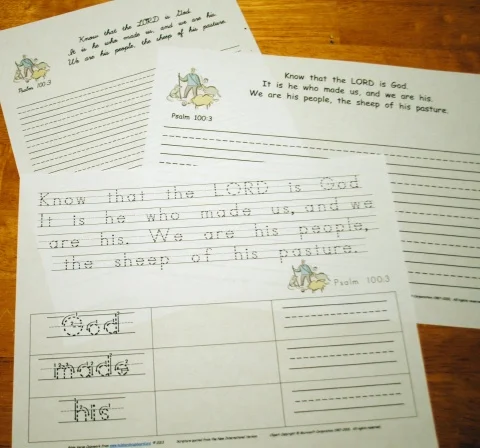 Know that the LORD is God.
It is he who made us, and we are his.
We are his people, the sheep of his pasture.
Psalm 100:3
Know that the LORD is God.
It is he who made us, and we are his.
We are his people, the sheep of his pasture.
Psalm 100:3
Know that the LORD is God.
It is he who made us, and we
are his. We are his people,
the sheep of his pasture.
Psalm 100:3
God
made
his
Scripture quoted from the New International Version